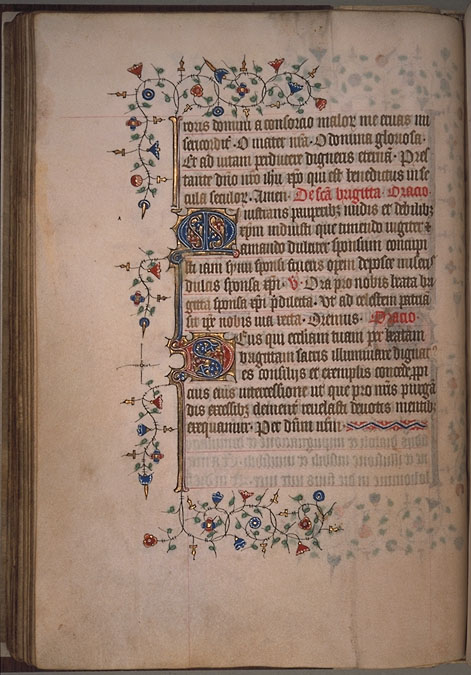 toris domini a consorcio malor me eruas mi
sericordie. O mater n̄ra. O domina gloriosa.
Et ad uitam perducere digneris eternā. Pres
tante dn̄o nr̄o ihu xp̄o qui est benedictus in se
cula seculor. Amen. De sc̄a brigitta. Oracio.
iustrans pauperibꝫ nudis et debilibꝫ
xp̄m induisti que timendo uigiter ⁊
amando dulciter sponsum
sti iam
dulas sponsa xp̄i. V. Ora pro nobis beata bri
gitta sponsa xp̄i p̄dilecta. Ut ad celestem patriā
sit ip̄e nobis uia recta. Oremus. Oracio.
Eus qui eccliam tuam per beatam
brigittam sacris illuminare dignat
es consilijs et exemplis concede ꝓpi
cius eius intercessione ut que pro nr̄is purgā
dis excessibꝫ clemēter reuelasti deuotis mentibꝫ
exequamur. Per dn̄m nr̄m.